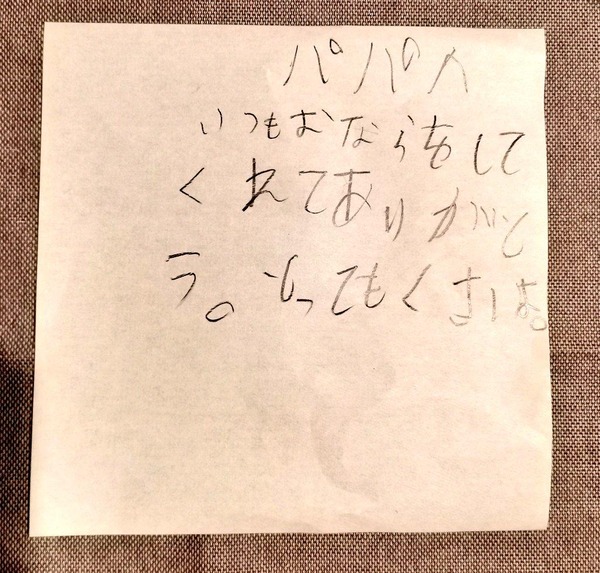 パパへ
いつもおならをして
くれてありがと
う。とってもくさいよ。